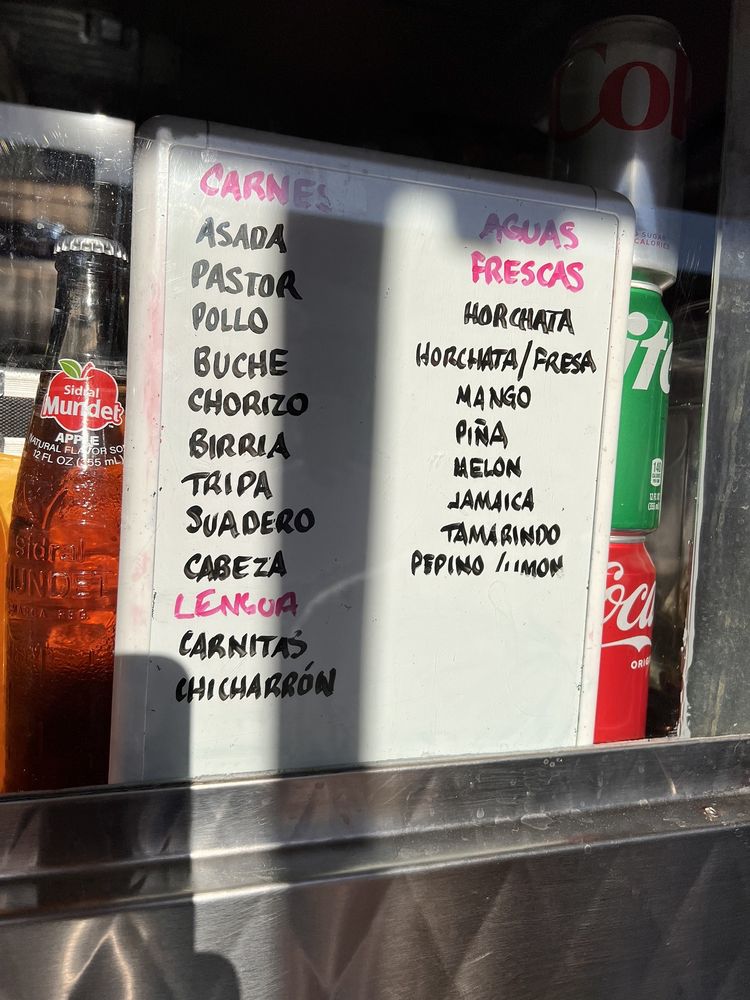 CARNES
ASADA
PASTOR
POLLO
BUCHE
CHORIZO
BIRRIA
TRIPA
SUADERO
CABEZA
LENGUA
CARNITAS
CHICHARRÓN
AGUAS
FRESCAS
HORCHATA
HORCHATA/FRESA
MANGO
PIÑA
MELON
JAMAICA
TAMARINDO
PEPINO /LIMON
Sidral
Mundet
APPLE
NATURAL FLAVOR SO
12 FL OZ (355 mL)
Sidral
MUNDET
Co
SUGAR
CALORIES
ite
140
Coca
ORIG